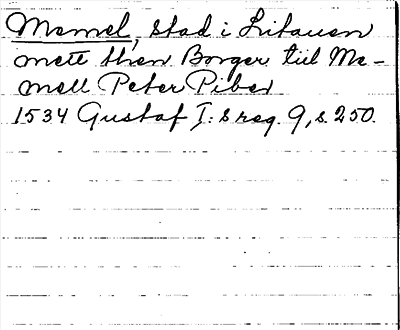 Memel, stad i Litauen
mett then Borger till Me-
mell Peter Piber
1534 Gustaf I:s reg. 9, s. 250.